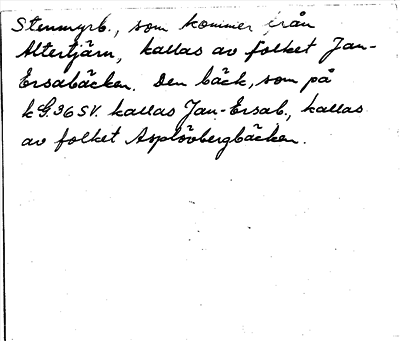 Stenmyrb., som kommer från
Altertjärn, kallas av folket Jan-
Ersabäcken. Den bäck, som på
k G. 36 SV. kallas Jan-Ersab., kallas
av folket Asplövbergbäcken.